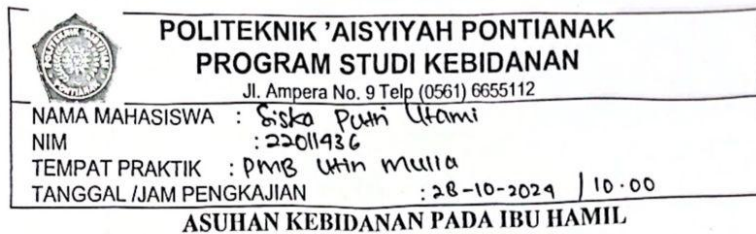 POLITEKNIK 'AISYIYAH PONTIANAK
PROGRAM STUDI KEBIDANAN
Jl. Ampera No. 9 Telp (0561) 6655112
NAMA MAHASISWA : Siska Putri Utami
NIM : 22011436
TEMPAT PRAKTIK : PMB Utin Mulia
TANGGAL /JAM PENGKAJIAN : 28-10-2024 / 10.00
ASUHAN KEBIDANAN PADA IBU HAMIL